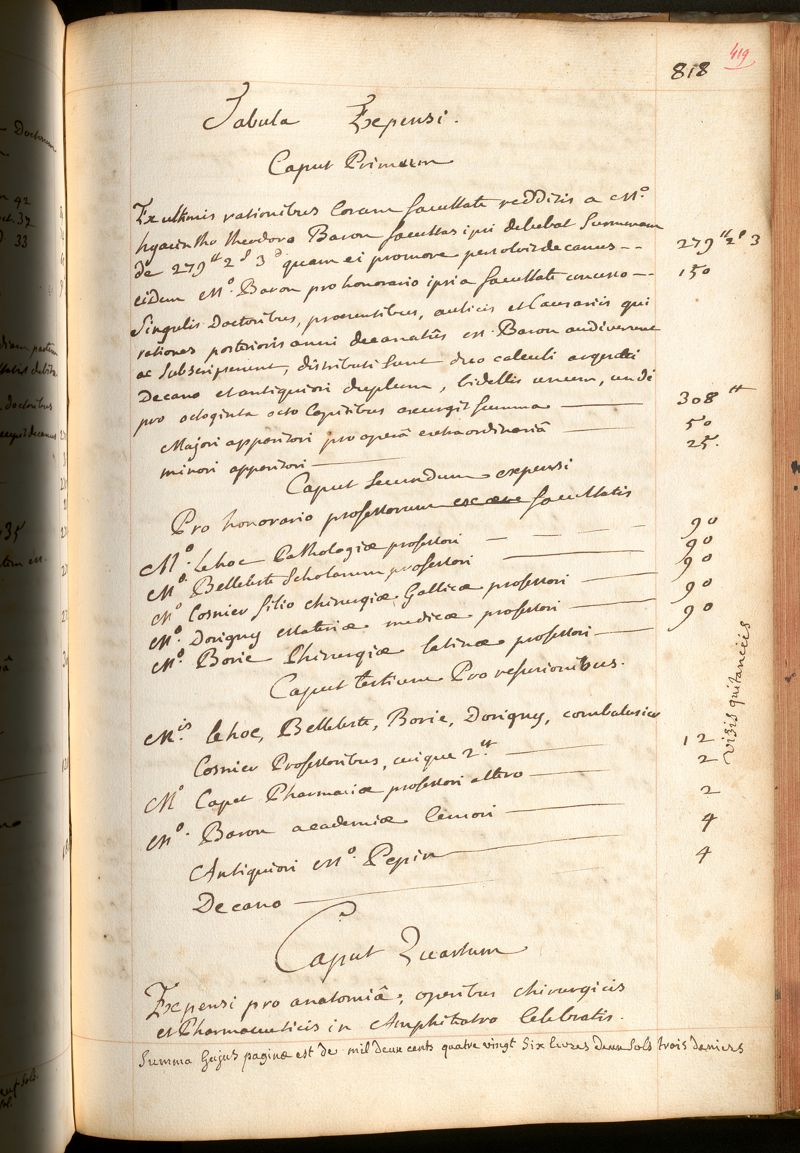 419
818
Tabula Expensi.
Caput Primum
Ex ultimis rationibus Coram facultate redditis a M.º
hyacintho theodoro Baron facultas ipsi debebat Summam
de 279 ᵗᵗ 2 ˢ 3 ᵈ quam ei promove persolvit decanus -- 279 ᵗᵗ 2 ˢ 3
eidem M.º Baron pro honorario ipsi a facultate concesso -- 150
Singulis Doctoribus, praesentibus, aulicis et Causariis qui
rationes posterioris anni decanatûs M. Baron audiverunt
ac Subscripserunt, distributi Sunt duo calculi argentei
Decano et antiquiori duplum, bidellis unum, undè
pro octoginta octo Capitibus exurgit Summa — 308 ᵗᵗ
Majori apparitori pro operâ extraordinariâ — 50
minori apparitori — 25.
Caput Secundum expensi
Pro honorario professorum facultatis
M.º Lehoc Pathologiæ professori — 90
M.º Belleteste Scholarum professori — 90
M.º Cosnier filio chirurgiæ Gallicæ professori — 90
M.º Dorigny Materiæ medicæ professori — 90
M.º Borie Chirurgiæ latinæ professori — 90
Caput tertium Pro vesperionibus.
M.ⁱˢ Lehoc, Belleteste, Borie, Dorigny, combalusier
Cosnier Professoribus, cuique 2 ᵗᵗ — 12
M.º Capet Pharmaciæ professori altero — 2
M.º Baron academiæ Censori — 2
Antiquiori M.º Pepin — 4
Decano — 4
visis quitanciis
Caput Quartum
Expensi pro anatomiâ, operibus chirurgicis
et Pharmaceuticis in Amphiteatro Celebratis.
Summa hujus paginæ est de mil deux cents quatre vingt Six livres deux Sols trois deniers